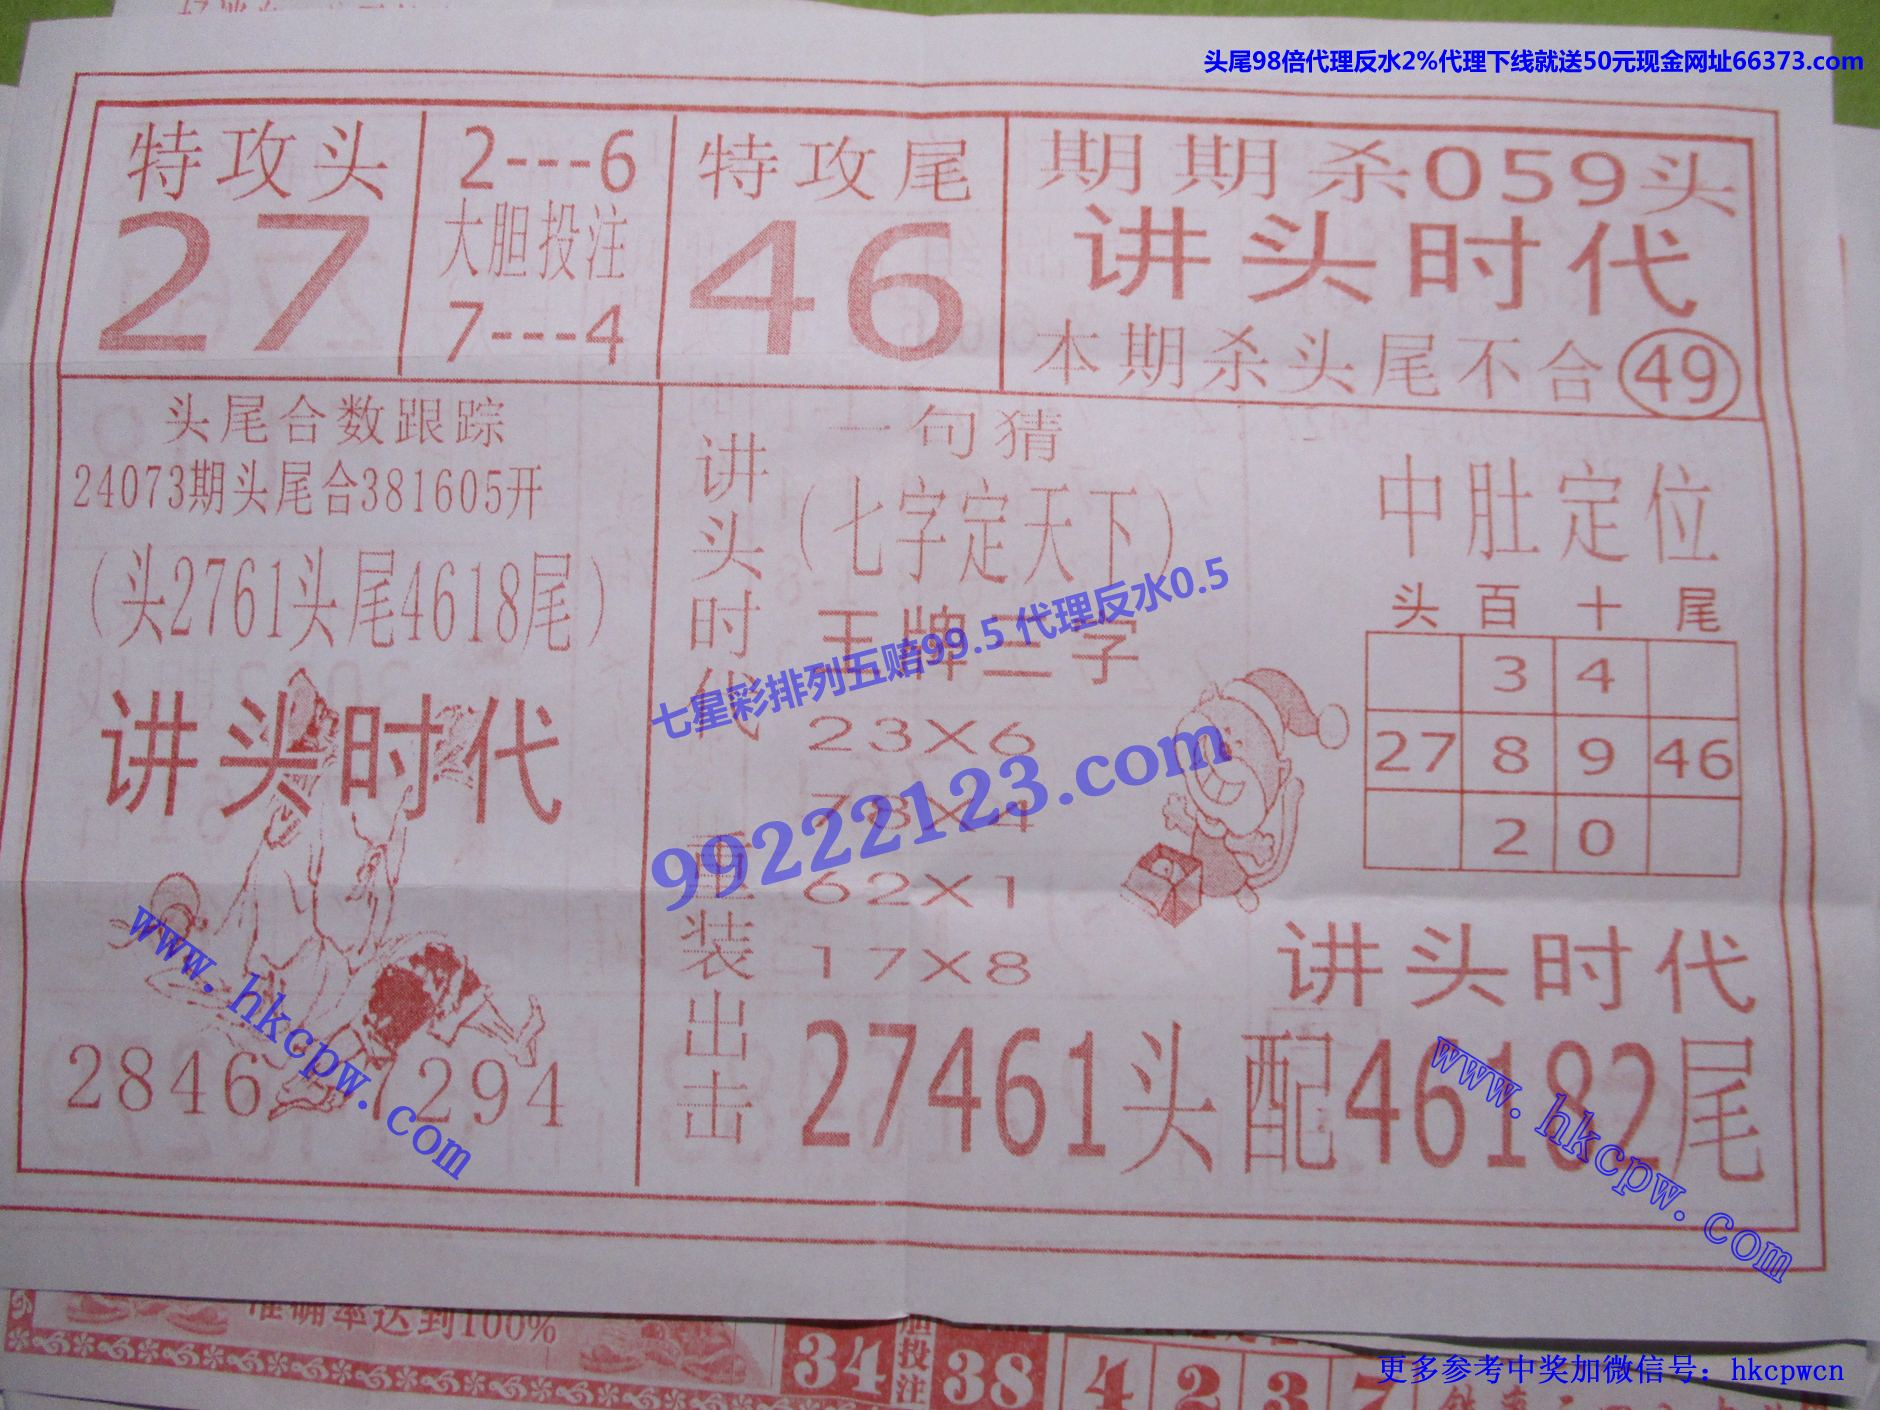 头尾98倍代理反水2%代理下线就送50元现金网址66373.com
特攻头
27
2---6
大胆投注
7---4
特攻尾
46
期期杀059头
讲头时代
本期杀头尾不合49
头尾合数跟踪
24073期头尾合381605开
(头2761头尾4618尾)
讲头时代
2846
294
www.hkcpw.com
讲头时代
重装出击
一句猜
(七字定天下)
王牌三字
23X6
78X4
62X1
17X8
七星彩排列五赔99.5 代理反水0.5
99222123.com
中肚定位
头 百 十 尾
3 4
27 8 9 46
2 0
讲头时代
27461头配46182尾
www.hkcpw.com
准确率达到100%
34
胆投注
38
4 2 3 7
更多参考中奖加微信号：hkcpwcn